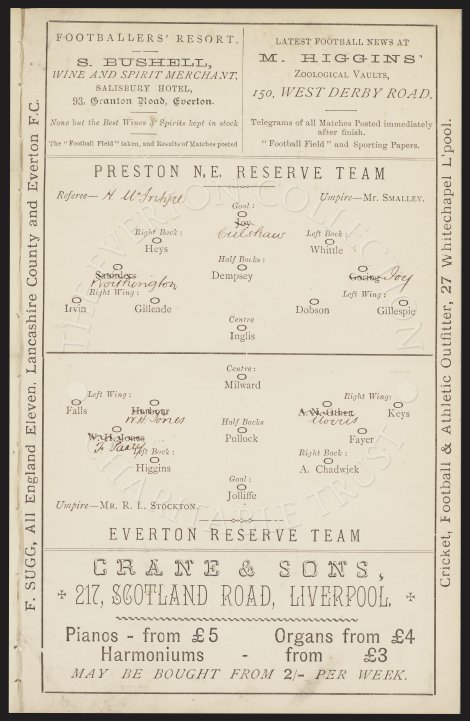 FOOTBALLERS' RESORT.
S. BUSHELL,
WINE AND SPIRIT MERCHANT,
SALISBURY HOTEL,
93, Granton Road, Everton.
None but the Best Wines & Spirits kept in stock
The "Football Field" taken, and Results of Matches posted
LATEST FOOTBALL NEWS AT
M. HIGGINS'
ZOOLOGICAL VAULTS,
150, WEST DERBY ROAD.
Telegrams of all Matches Posted immediately
after finish.
"Football Field" and Sporting Papers.
F. SUGG, All England Eleven, Lancashire County and Everton F.C.
PRESTON N.E. RESERVE TEAM
Referee— H McIntyre
Umpire—MR. SMALLEY.
Goal:
Joy
Culshaw
Right Back:
Heys
Left Back:
Whittle
Half Backs:
Saunders
Worthington
Dempsey
Goring Joy
Right Wing:
Irvin Gilleade
Left Wing:
Dobson Gillespie
Centre
Inglis
Centre:
Milward
Left Wing:
Falls
W H Jones
Right Wing:
Morris
Keys
Half Backs
W. H. Jones
Pollock
Fayer
Left Back:
Higgins
Right Back:
A. Chadwick
Goal:
Jolliffe
Umpire—MR. R. L. STOCKTON.
EVERTON RESERVE TEAM
CRANE & SONS,
217, SCOTLAND ROAD, LIVERPOOL.
Pianos - from £5 Organs from £4
Harmoniums - from £3
MAY BE BOUGHT FROM 2/- PER WEEK.
Cricket, Football & Athletic Outfitter, 27 Whitechapel L'pool.
THE EVERTON COLLECTION
CHARITABLE TRUST